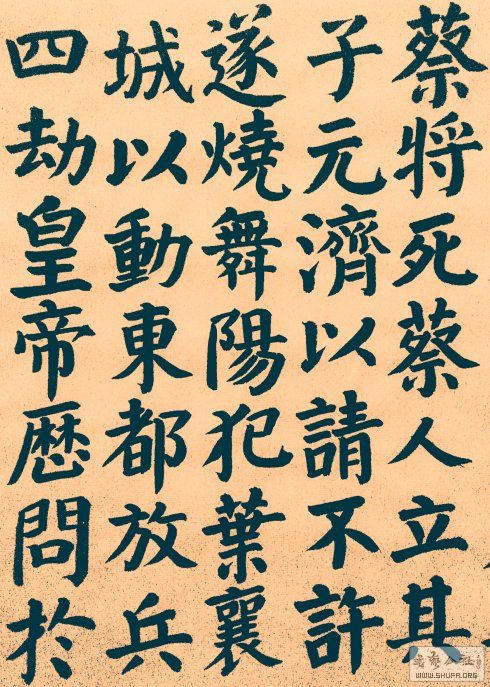 蔡將死蔡人立其
子元濟以請不許
遂燒舞陽犯葉襄
城以動東都放兵
四劫皇帝歷問於
WWW.SHUFA.ORG